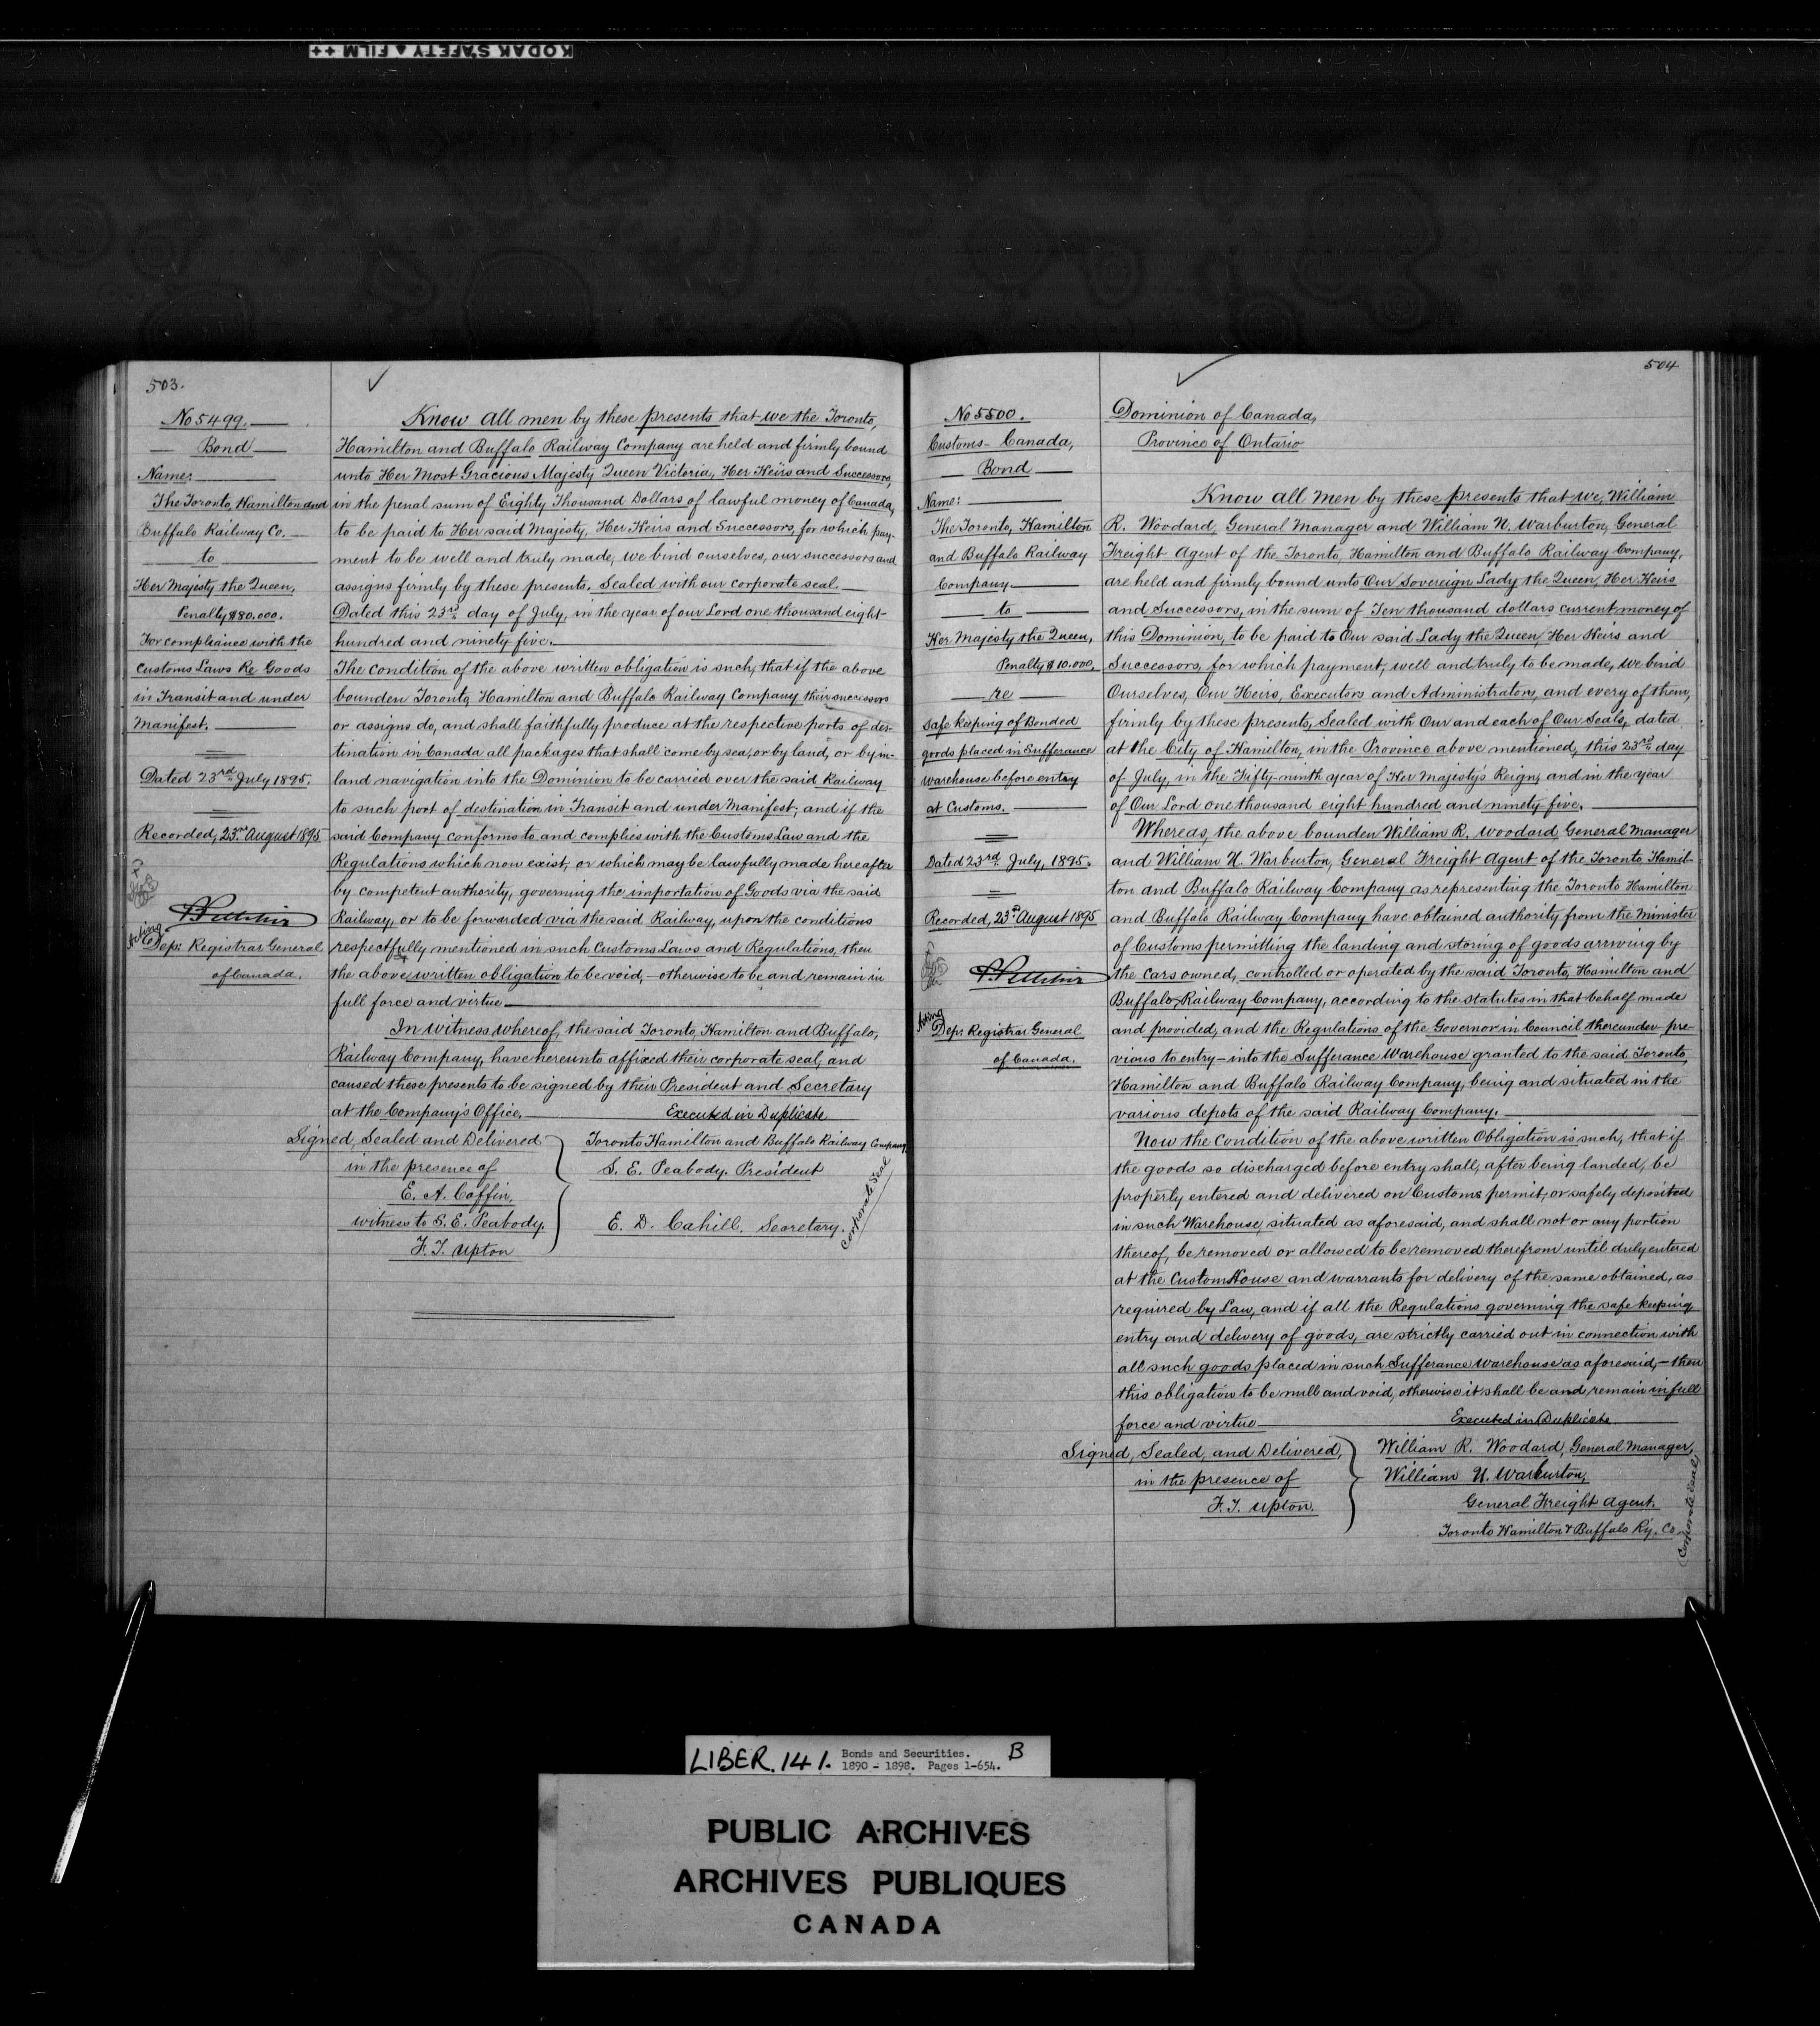 KODAK SAFETY FILM ++
503.
No 5499.
Bond
Name:
The Toronto, Hamilton and
Buffalo Railway Co.
to
Her Majesty the Queen,
Penalty $80.000.
For compliance with the
Customs Laws Re Goods
in Transit and under
Manifest.
Dated 23rd July 1895.
Recorded, 23rd August 1895
Acting
Dep: Registrar General
of Canada.
Know all men by these presents that we the Toronto,
Hamilton and Buffalo Railway Company are held and firmly bound
unto Her Most Gracious Majesty Queen Victoria, Her Heirs and Successors,
in the penal sum of Eighty Thousand Dollars of lawful money of Canada,
to be paid to Her said Majesty, Her Heirs and Successors, for which pay-
ment to be well and truly made, we bind ourselves, our successors and
assigns firmly by these presents, Sealed with our corporate seal.
Dated this 23rd day of July, in the year of our Lord one thousand eight
hundred and ninety five.
The condition of the above written obligation is such, that if the above
bounden Toronto, Hamilton and Buffalo Railway Company their successors
or assigns do, and shall faithfully produce at the respective ports of des-
tination in Canada all packages that shall come by sea, or by land, or by in-
land navigation into the Dominion to be carried over the said Railway
to such port of destination in Transit and under Manifest, and if the
said Company conforms to and complies with the Customs Law and the
Regulations which now exist, or which may be lawfully made hereafter
by competent authority, governing the importation of Goods via the said
Railway, or to be forwarded via the said Railway, upon the conditions
respectfully mentioned in such Customs Laws and Regulations, then
the above written obligation to be void, – otherwise to be and remain in
full force and virtue
In witness whereof, the said Toronto, Hamilton and Buffalo,
Railway Company, have hereunto affixed their corporate seal, and
caused these presents to be signed by their President and Secretary
at the Company's Office. Executed in Duplicate
Signed, Sealed and Delivered
in the presence of
E. A. Coffin,
witness to S. E. Peabody.
F. T. Upton
Toronto Hamilton and Buffalo Railway Company,
S. E. Peabody. President
E. D. Cahill. Secretary.
Corporate Seal
504
No 5500.
Customs – Canada,
Bond
Name:
The Toronto, Hamilton
and Buffalo Railway
Company
to
Her Majesty the Queen,
Penalty $10.000.
re
Safe keeping of Bonded
goods placed in Sufferance
warehouse before entry
at Customs.
Dated 23rd July, 1895.
Recorded, 23rd August 1895
Acting
Dep: Registrar General
of Canada.
Dominion of Canada,
Province of Ontario
Know all men by these presents that we, William
R. Woodard, General Manager and William N. Warburton, General
Freight Agent of the Toronto, Hamilton and Buffalo Railway Company,
are held and firmly bound unto Our Sovereign Lady the Queen, Her Heirs
and Successors, in the sum of Ten thousand dollars current money of
this Dominion, to be paid to Our said Lady the Queen, Her Heirs and
Successors, for which payment, well and truly to be made, we bind
Ourselves, Our Heirs, Executors and Administrators, and every of them,
firmly by these presents, Sealed with Our and each of Our Seals, dated
at the City of Hamilton, in the Province above mentioned, this 23rd day
of July, in the Fifty-ninth year of Her Majesty's Reign, and in the year
of Our Lord one thousand eight hundred and ninety five.
Whereas, the above bounden William R. Woodard General Manager
and William N. Warburton, General Freight Agent of the Toronto Hamil-
ton and Buffalo Railway Company as representing the Toronto Hamilton
and Buffalo Railway Company have obtained authority from the Minister
of Customs permitting the landing and storing of goods arriving by
the cars owned, controlled or operated by the said Toronto, Hamilton and
Buffalo, Railway Company, according to the statutes in that behalf made
and provided, and the Regulations of the Governor in Council thereunder – pre-
vious to entry – into the Sufferance Warehouse granted to the said Toronto,
Hamilton and Buffalo Railway Company, being and situated in the
various depots of the said Railway Company.
Now the Condition of the above written Obligation is such, that if
the goods so discharged before entry shall, after being landed, be
properly entered and delivered on Customs permit, or safely deposited
in such Warehouse, situated as aforesaid, and shall not or any portion
thereof, be removed or allowed to be removed therefrom until duly entered
at the Customs House and warrants for delivery of the same obtained, as
required by Law, and if all the Regulations governing the safe keeping
entry and delivery of goods, are strictly carried out in connection with
all such goods placed in such Sufferance Warehouse as aforesaid, – then
this obligation to be null and void, otherwise it shall be and remain in full
force and virtue Executed in Duplicate
Signed, Sealed, and Delivered,
in the presence of
F. T. Upton.
William R. Woodard, General Manager,
William N. Warburton,
General Freight Agent.
Toronto Hamilton & Buffalo Ry. Co.
(Corporate Seal)
LIBER. 141. Bonds and Securities. B
1890 - 1898. Pages 1-654.
PUBLIC ARCHIVES
ARCHIVES PUBLIQUES
CANADA